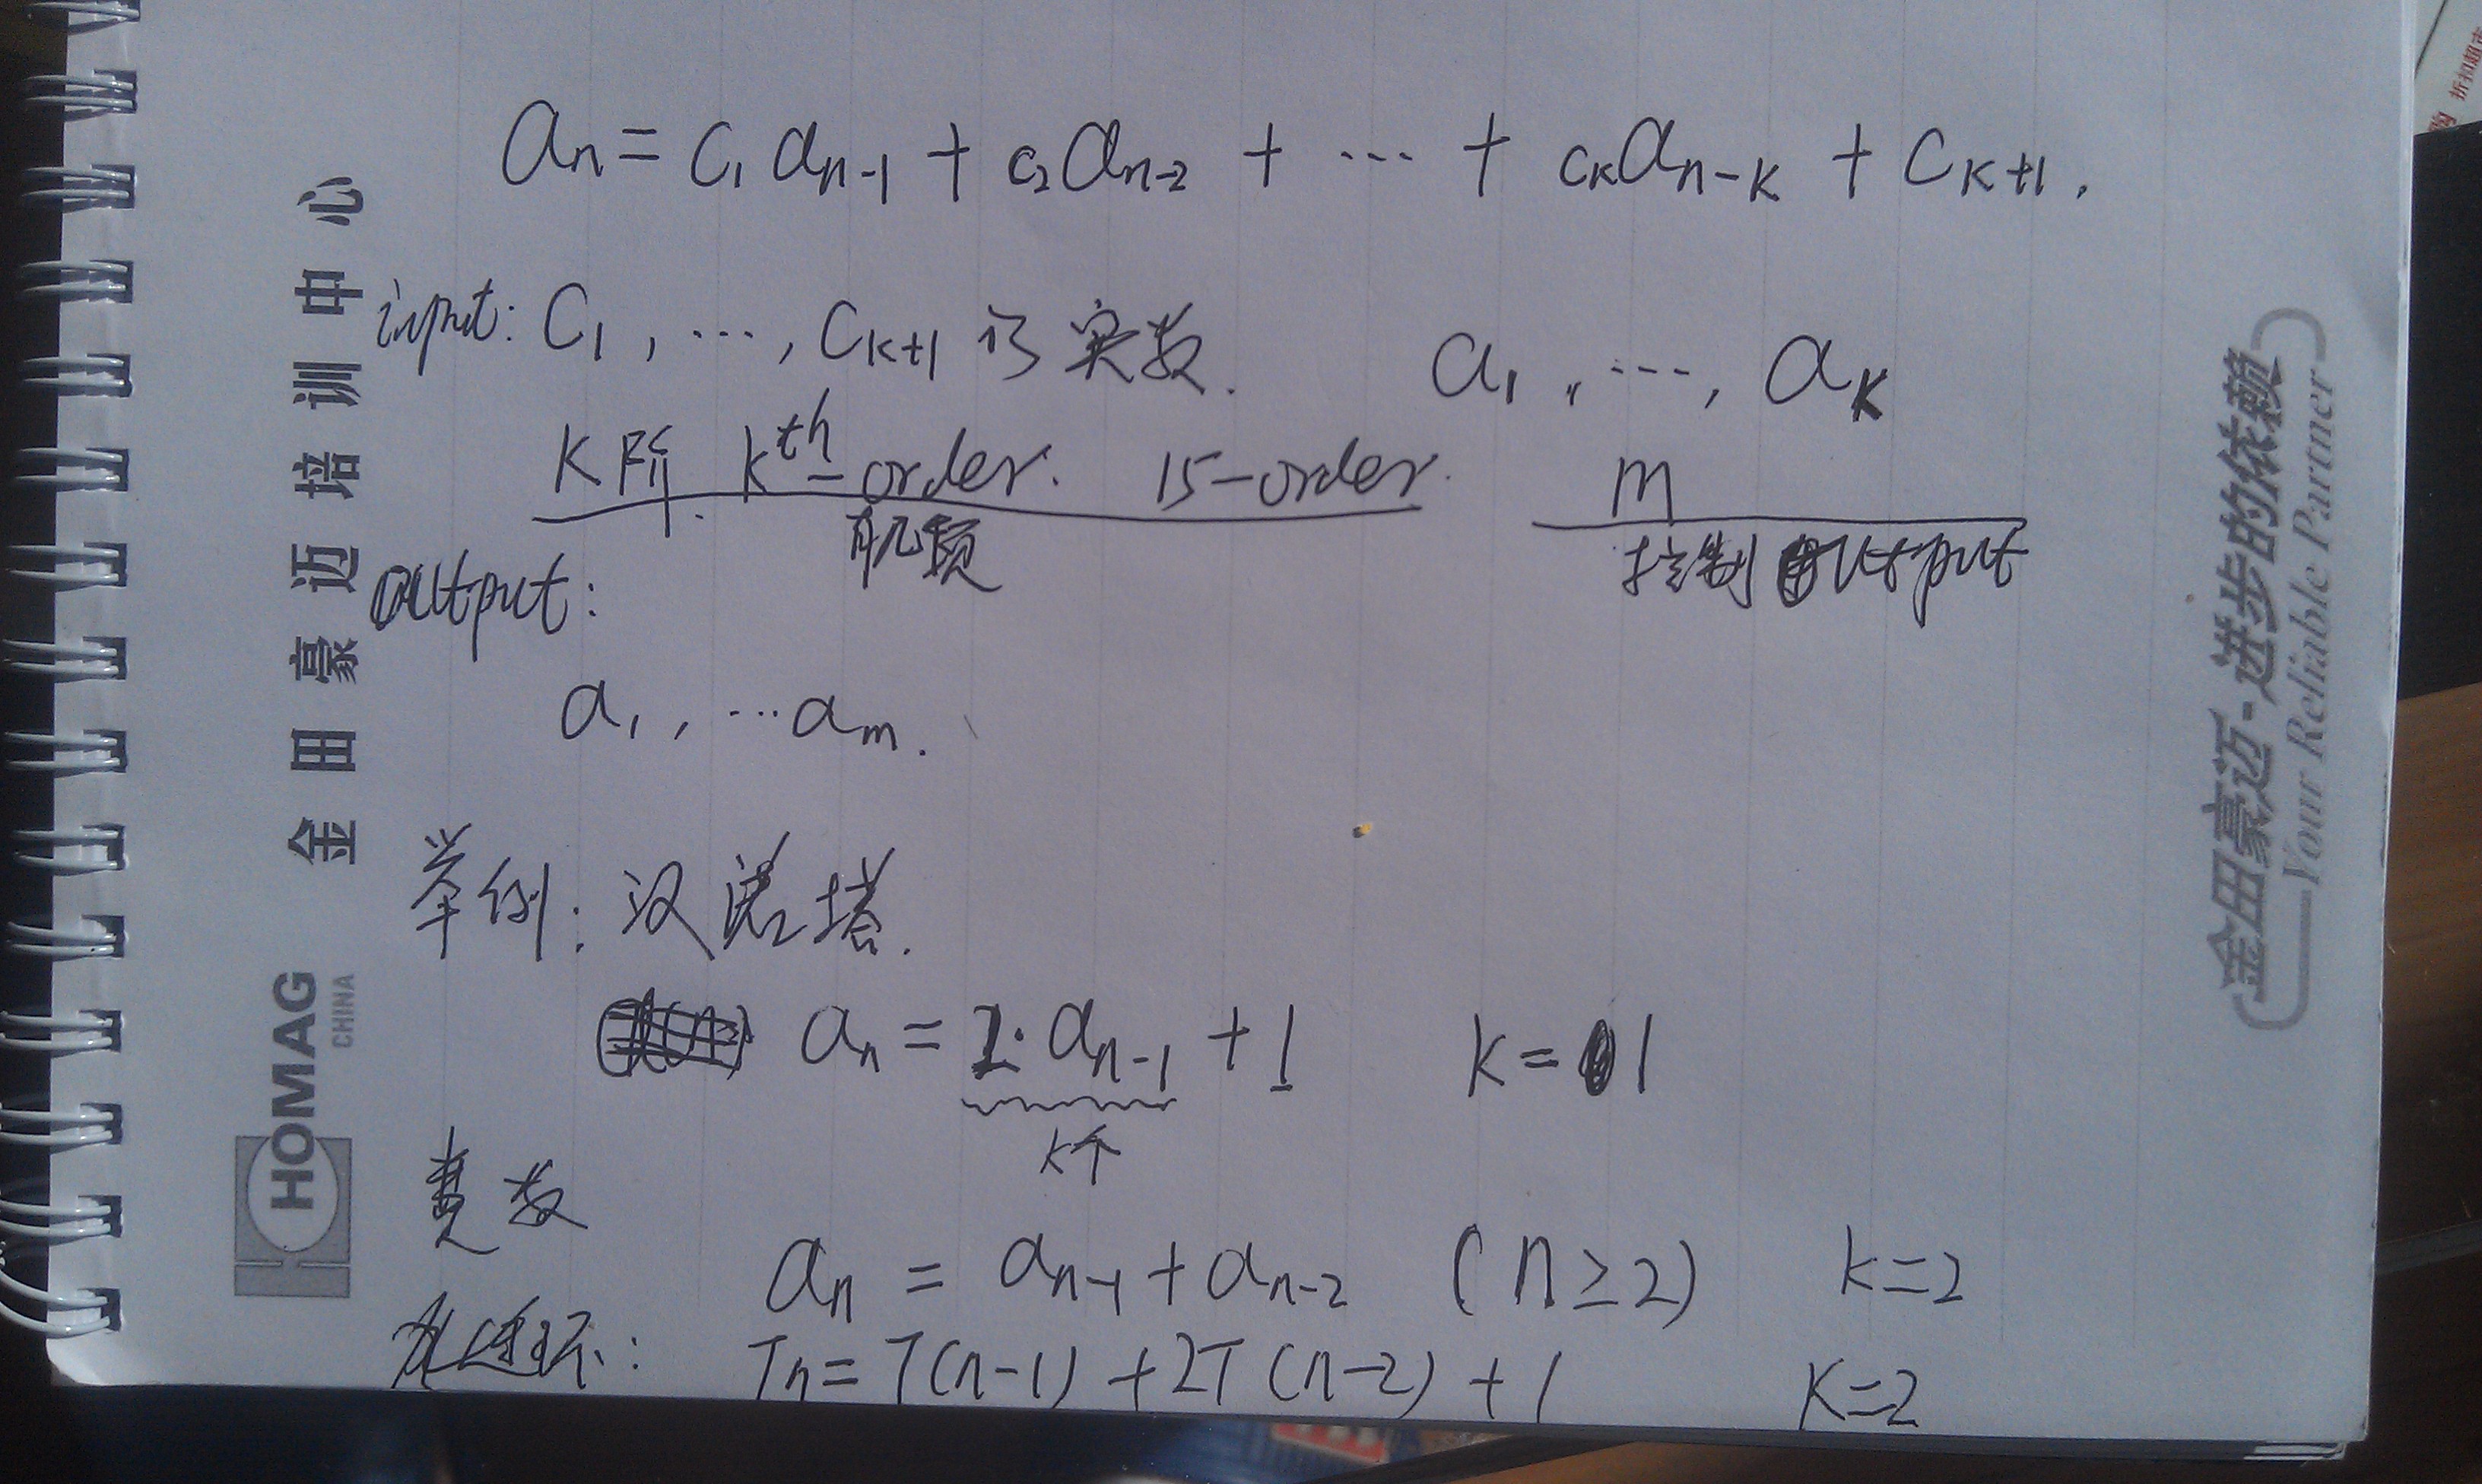 aₙ = c₁aₙ₋₁ + c₂aₙ₋₂ + ⋯ + cₖaₙ₋ₖ + cₖ₊₁.
input: c₁, ⋯, cₖ₊₁ 为实数. a₁, ⋯, aₖ
K阶. kᵗʰ-order. 15-order. m
有几项 控制 output
output:
a₁, ⋯aₘ.
举例: 汉诺塔.
aₙ = 2·aₙ₋₁ + 1 K = 1
k个
aₙ = aₙ₋₁ + aₙ₋₂ (n≥2) k=2
九连环: Tn = T(n-1) + 2T(n-2) + 1 K=2
金田豪迈培训中心
HOMAG
CHINA
金田豪迈-进步的依赖
Your Reliable Partner